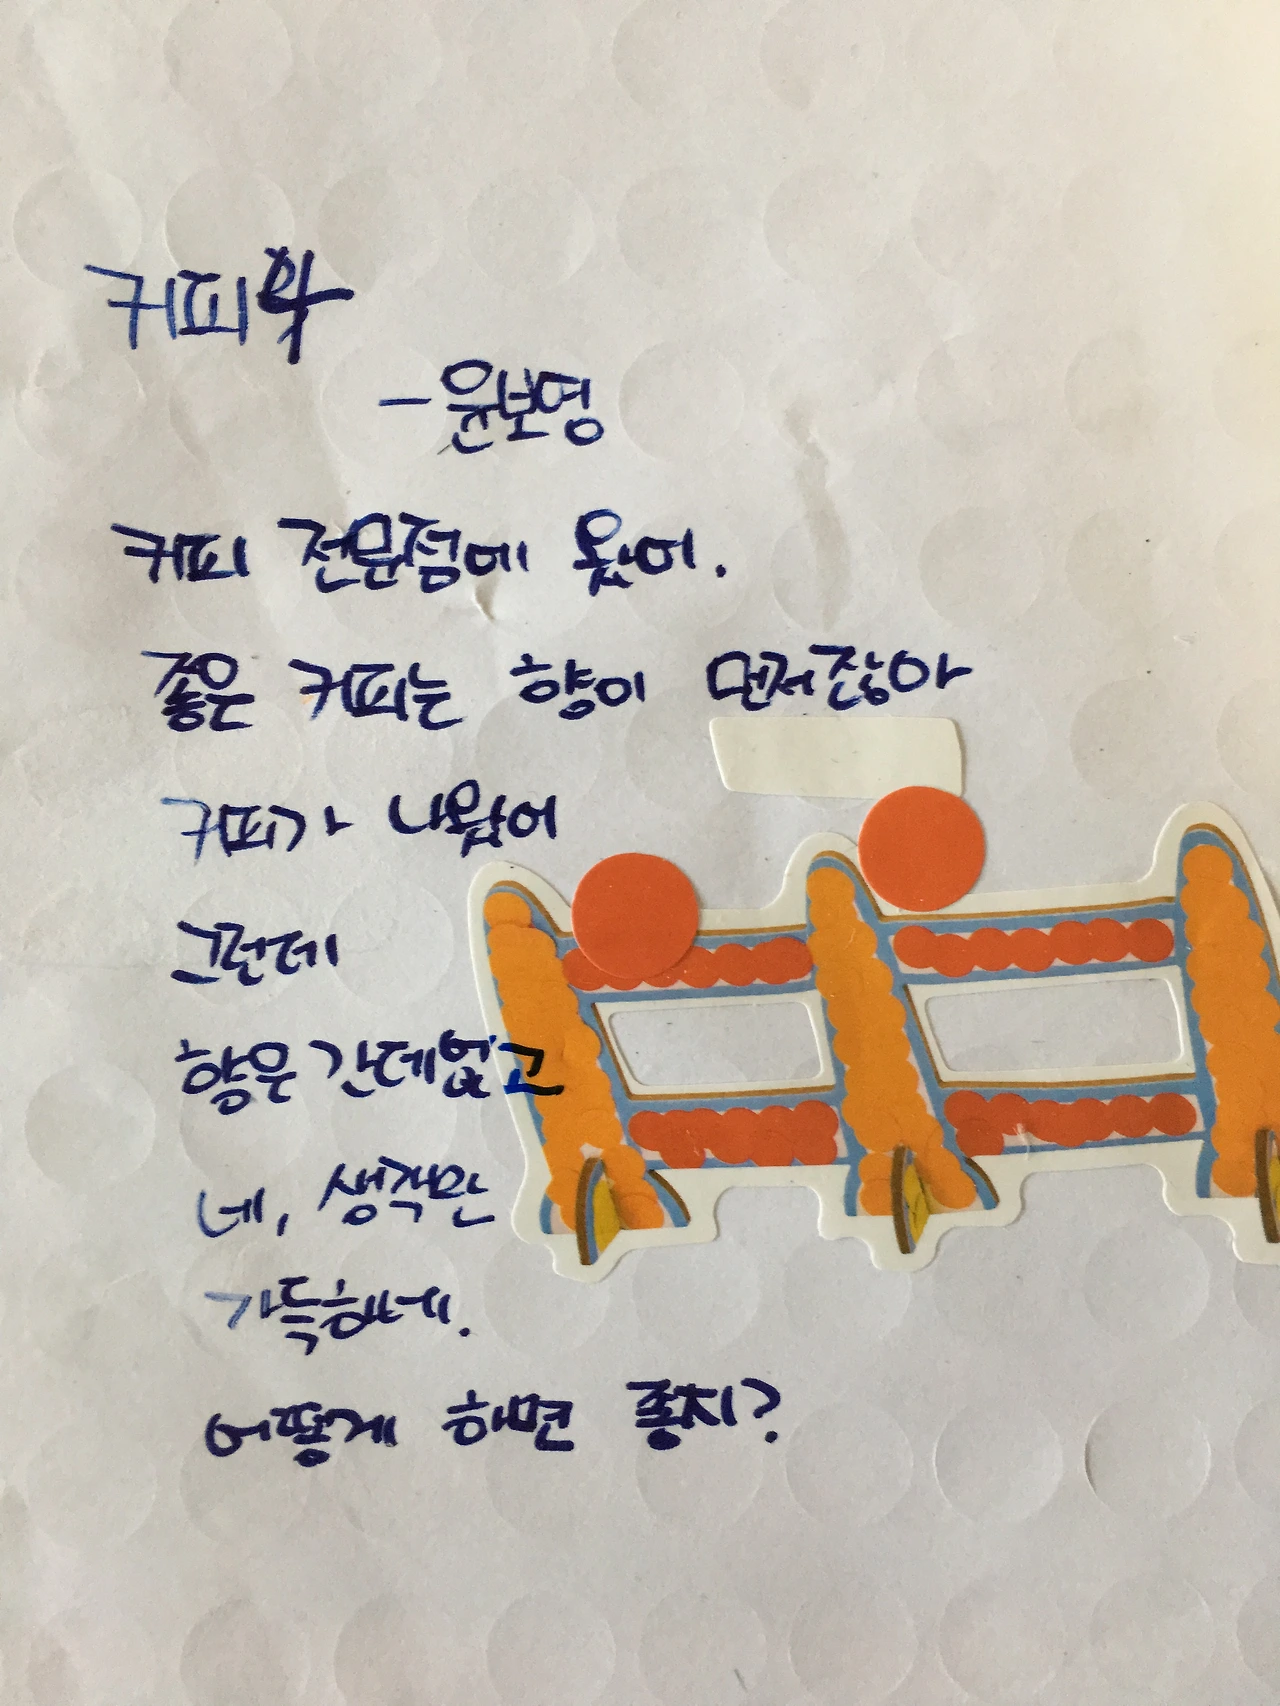 커피와
- 윤보영
커피 전문점에 왔어.
좋은 커피는 향이 먼저잖아
커피가 나왔어
그런데
향은 간데없고
네, 생각만
가득하네.
어떻게 하면 좋지?